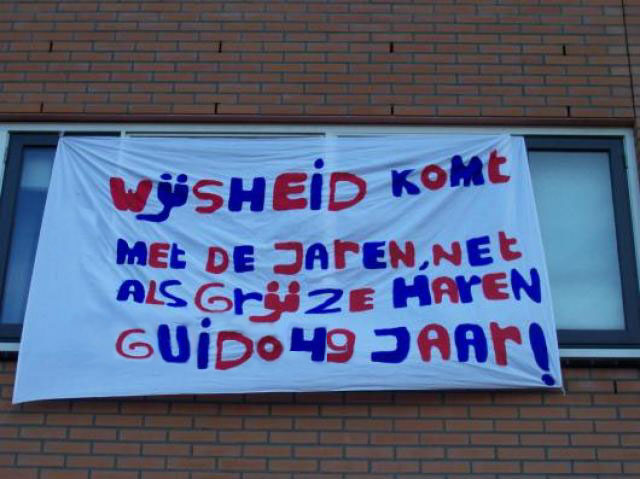 WijSHEiD KOMt
MEt DE JArEN, NEt
ALS GrijZE HArEN
GUiDO 49 JAAr!